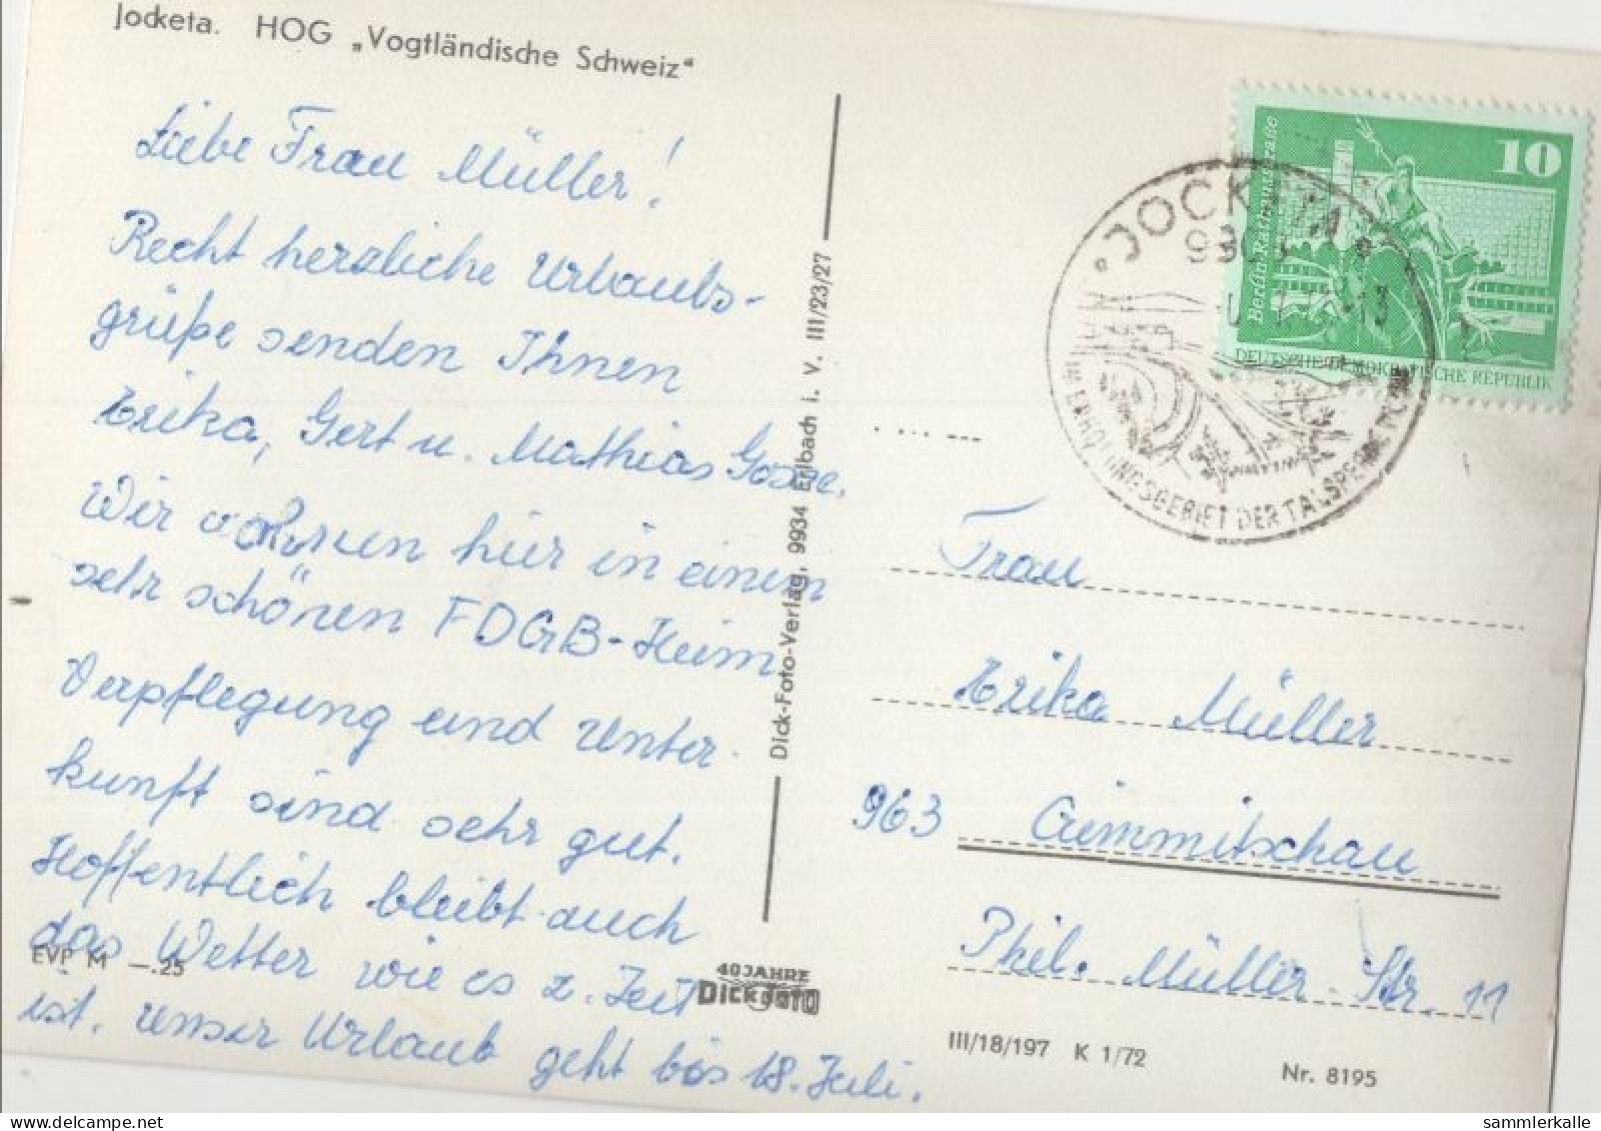 Jocketa. HOG „Vogtländische Schweiz"
Liebe Frau Müller!
Recht herzliche Urlaubs-
grüße senden Ihnen
Erika, Gert u. Mathias
Wir wohnen hier in einem
sehr schönen FDGB-Heim
Verpflegung und Unter-
kunft sind sehr gut.
Hoffentlich bleibt auch
das Wetter wie es z. Zeit
ist. Unser Urlaub geht bis 18. Juli.
EVP M —.25
Dick-Foto-Verlag, 9934 Erlbach i. V. III/23/27
40 JAHRE
DICK FOTO
10
Berlin-Rathausstraße
DEUTSCHE DEMOKRATISCHE REPUBLIK
JOCKETA
IM ERHOLUNGSGEBIET DER TALSPERRE
Frau
Erika Müller
963 Crimmitschau
Phil. Müller Str. 11
III/18/197 K 1/72
Nr. 8195
sammlerkalle
www.delcampe.net